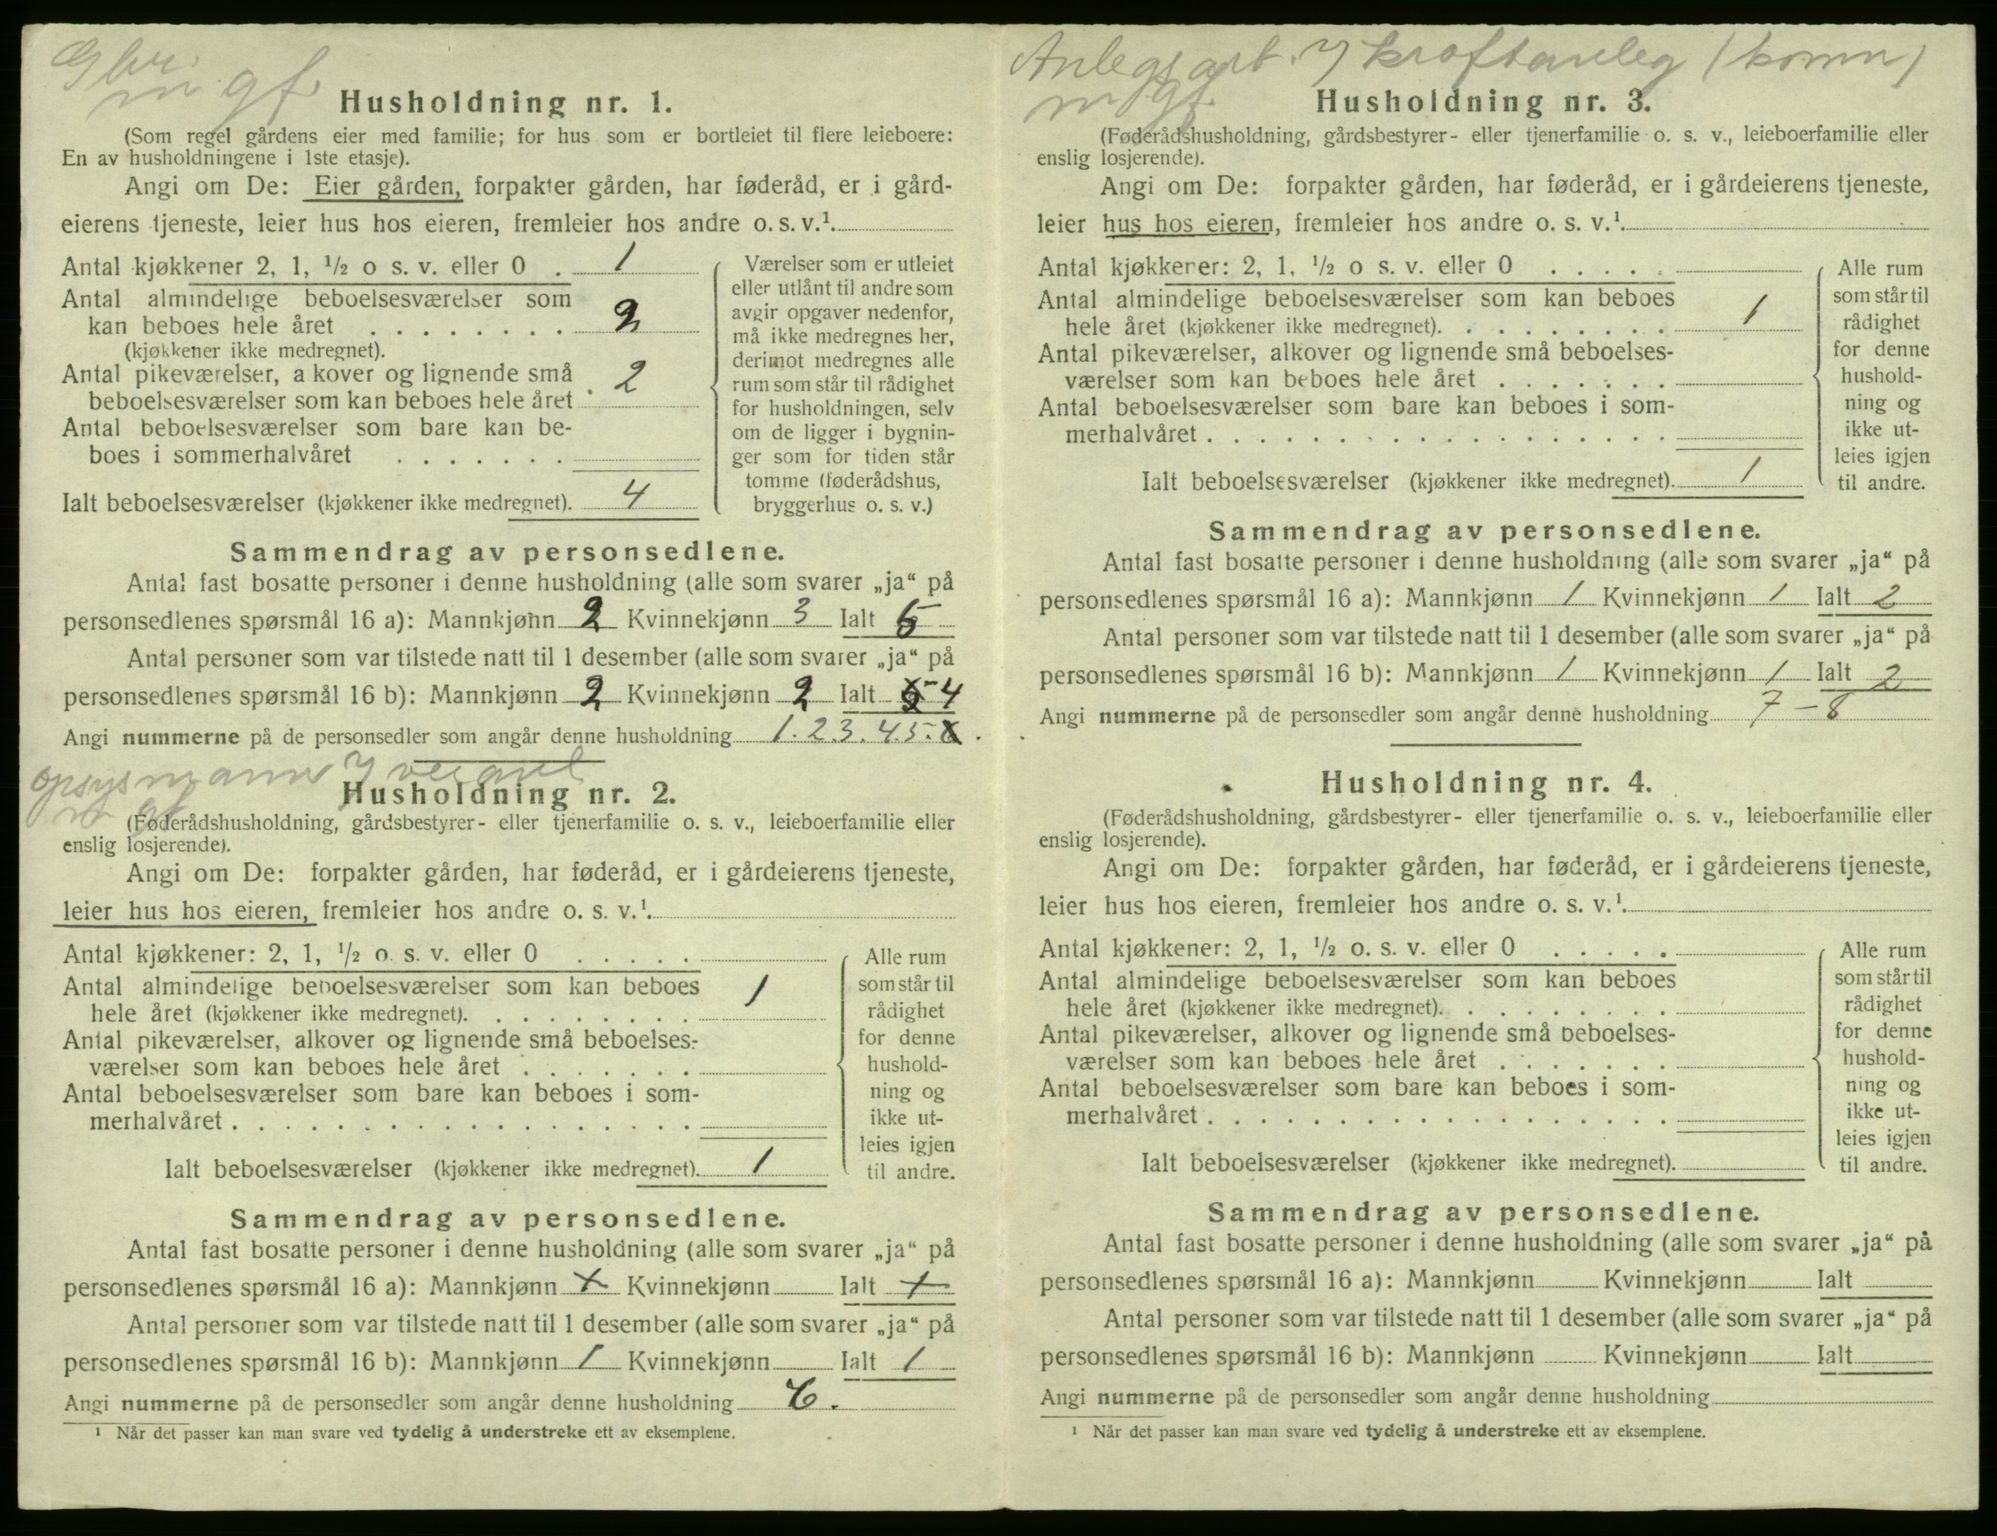 Gbr.
m gf.
Husholdning nr. 1.
(Som regel gårdens eier med familie; for hus som er bortleiet til flere leieboere:
En av husholdningene i 1ste etasje).
Angi om De: Eier gården, forpakter gården, har føderåd, er i gård-
eierens tjeneste, leier hus hos eieren, fremleier hos andre o. s. v.¹.
Antal kjøkkener 2, 1, ½ o s. v. eller 0 . 1
Antal almindelige beboelsesværelser som
kan beboes hele året . . . . . . . . 2
(kjøkkener ikke medregnet).
Antal pikeværelser, a kover og lignende små
beboelsesværelser som kan beboes hele året 2
Antal beboelsesværelser som bare kan be-
boes i sommerhalvåret . . . . . . .
Ialt beboelsesværelser (kjøkkener ikke medregnet). 4
Værelser som er utleiet
eller utlånt til andre som
avgir opgaver nedenfor,
må ikke medregnes her,
derimot medregnes alle
rum som står til rådighet
for husholdningen, selv
om de ligger i bygnin-
ger som for tiden står
tomme (føderådshus,
bryggerhus o. s. v.)
Sammendrag av personsedlene.
Antal fast bosatte personer i denne husholdning (alle som svarer „ja“ på
personsedlenes spørsmål 16 a): Mannkjønn 2 Kvinnekjønn 3 Ialt 5
Antal personer som var tilstede natt til 1 desember (alle som svarer „ja“ på
personsedlenes spørsmål 16 b): Mannkjønn 2 Kvinnekjønn 2 Ialt 4
Angi nummerne på de personsedler som angår denne husholdning 1. 2 3. 4. 5.
opsynsmann
m gf
Husholdning nr. 2.
(Føderådshusholdning, gårdsbestyrer- eller tjenerfamilie o. s. v., leieboerfamilie eller
enslig losjerende).
Angi om De: forpakter gården, har føderåd, er i gårdeierens tjeneste,
leier hus hos eieren, fremleier hos andre o. s. v.¹.
Antal kjøkkener: 2, 1, ½ o. s. v. eller 0 . . . . .
Antal almindelige beboelsesværelser som kan beboes
hele året (kjøkkener ikke medregnet). . . . . . . . . 1
Antal pikeværelser, alkover og lignende små beboelses-
værelser som kan beboes hele året . . . . . . .
Antal beboelsesværelser som bare kan beboes i som-
merhalvåret . . . . . . . . . . . . . . . . . .
Ialt beboelsesværelser (kjøkkener ikke medregnet). 1
Alle rum
som står til
rådighet
for denne
hushold-
ning og
ikke ut-
leies igjen
til andre.
Sammendrag av personsedlene.
Antal fast bosatte personer i denne husholdning (alle som svarer „ja“ på
personsedlenes spørsmål 16 a): Mannkjønn + Kvinnekjønn Ialt +
Antal personer som var tilstede natt til 1 desember (alle som svarer „ja“ på
personsedlenes spørsmål 16 b): Mannkjønn 1 Kvinnekjønn Ialt 1
Angi nummerne på de personsedler som angår denne husholdning 6.
¹ Når det passer kan man svare ved tydelig å understreke ett av eksemplene.
Anlegsarb. v kraftanleg (komm)
m gf.
Husholdning nr. 3.
(Føderådshusholdning, gårdsbestyrer- eller tjenerfamilie o. s. v., leieboerfamilie eller
enslig losjerende).
Angi om De: forpakter gården, har føderåd, er i gårdeierens tjeneste,
leier hus hos eieren, fremleier hos andre o. s. v.¹.
Antal kjøkkener: 2, 1, ½ o s. v. eller 0 . . . . .
Antal almindelige beboelsesværelser som kan beboes
hele året (kjøkkener ikke medregnet). . . . . . . . . 1
Antal pikeværelser, alkover og lignende små beboelses-
værelser som kan beboes hele året . . . . . . .
Antal beboelsesværelser som bare kan beboes i som-
merhalvåret . . . . . . . . . . . . . . . . . .
Ialt beboelsesværelser (kjøkkener ikke medregnet). 1
Alle rum
som står til
rådighet
for denne
hushold-
ning og
ikke ut-
leies igjen
til andre.
Sammendrag av personsedlene.
Antal fast bosatte personer i denne husholdning (alle som svarer „ja“ på
personsedlenes spørsmål 16 a): Mannkjønn 1 Kvinnekjønn 1 Ialt 2
Antal personer som var tilstede natt til 1 desember (alle som svarer „ja“ på
personsedlenes spørsmål 16 b): Mannkjønn 1 Kvinnekjønn 1 Ialt 2
Angi nummerne på de personsedler som angår denne husholdning 7 - 8
Husholdning nr. 4.
(Føderådshusholdning, gårdsbestyrer- eller tjenerfamilie o. s. v., leieboerfamilie eller
enslig losjerende).
Angi om De: forpakter gården, har føderåd, er i gårdeierens tjeneste,
leier hus hos eieren, fremleier hos andre o. s. v.¹.
Antal kjøkkener: 2, 1, ½ o. s. v. eller 0 . . . . .
Antal almindelige beboelsesværelser som kan beboes
hele året (kjøkkener ikke medregnet). . . . . . . . .
Antal pikeværelser, alkover og lignende små beboelses-
værelser som kan beboes hele året . . . . . . .
Antal beboelsesværelser som bare kan beboes i som-
merhalvåret . . . . . . . . . . . . . . . . . .
Ialt beboelsesværelser (kjøkkener ikke medregnet).
Alle rum
som står til
rådighet
for denne
hushold-
ning og
ikke ut-
leies igjen
til andre.
Sammendrag av personsedlene.
Antal fast bosatte personer i denne husholdning (alle som svarer „ja“ på
personsedlenes spørsmål 16 a): Mannkjønn Kvinnekjønn Ialt
Antal personer som var tilstede natt til 1 desember (alle som svarer „ja“ på
personsedlenes spørsmål 16 b): Mannkjønn Kvinnekjønn Ialt
Angi nummerne på de personsedler som angår denne husholdning
¹ Når det passer kan man svare ved tydelig å understreke ett av eksemplene.